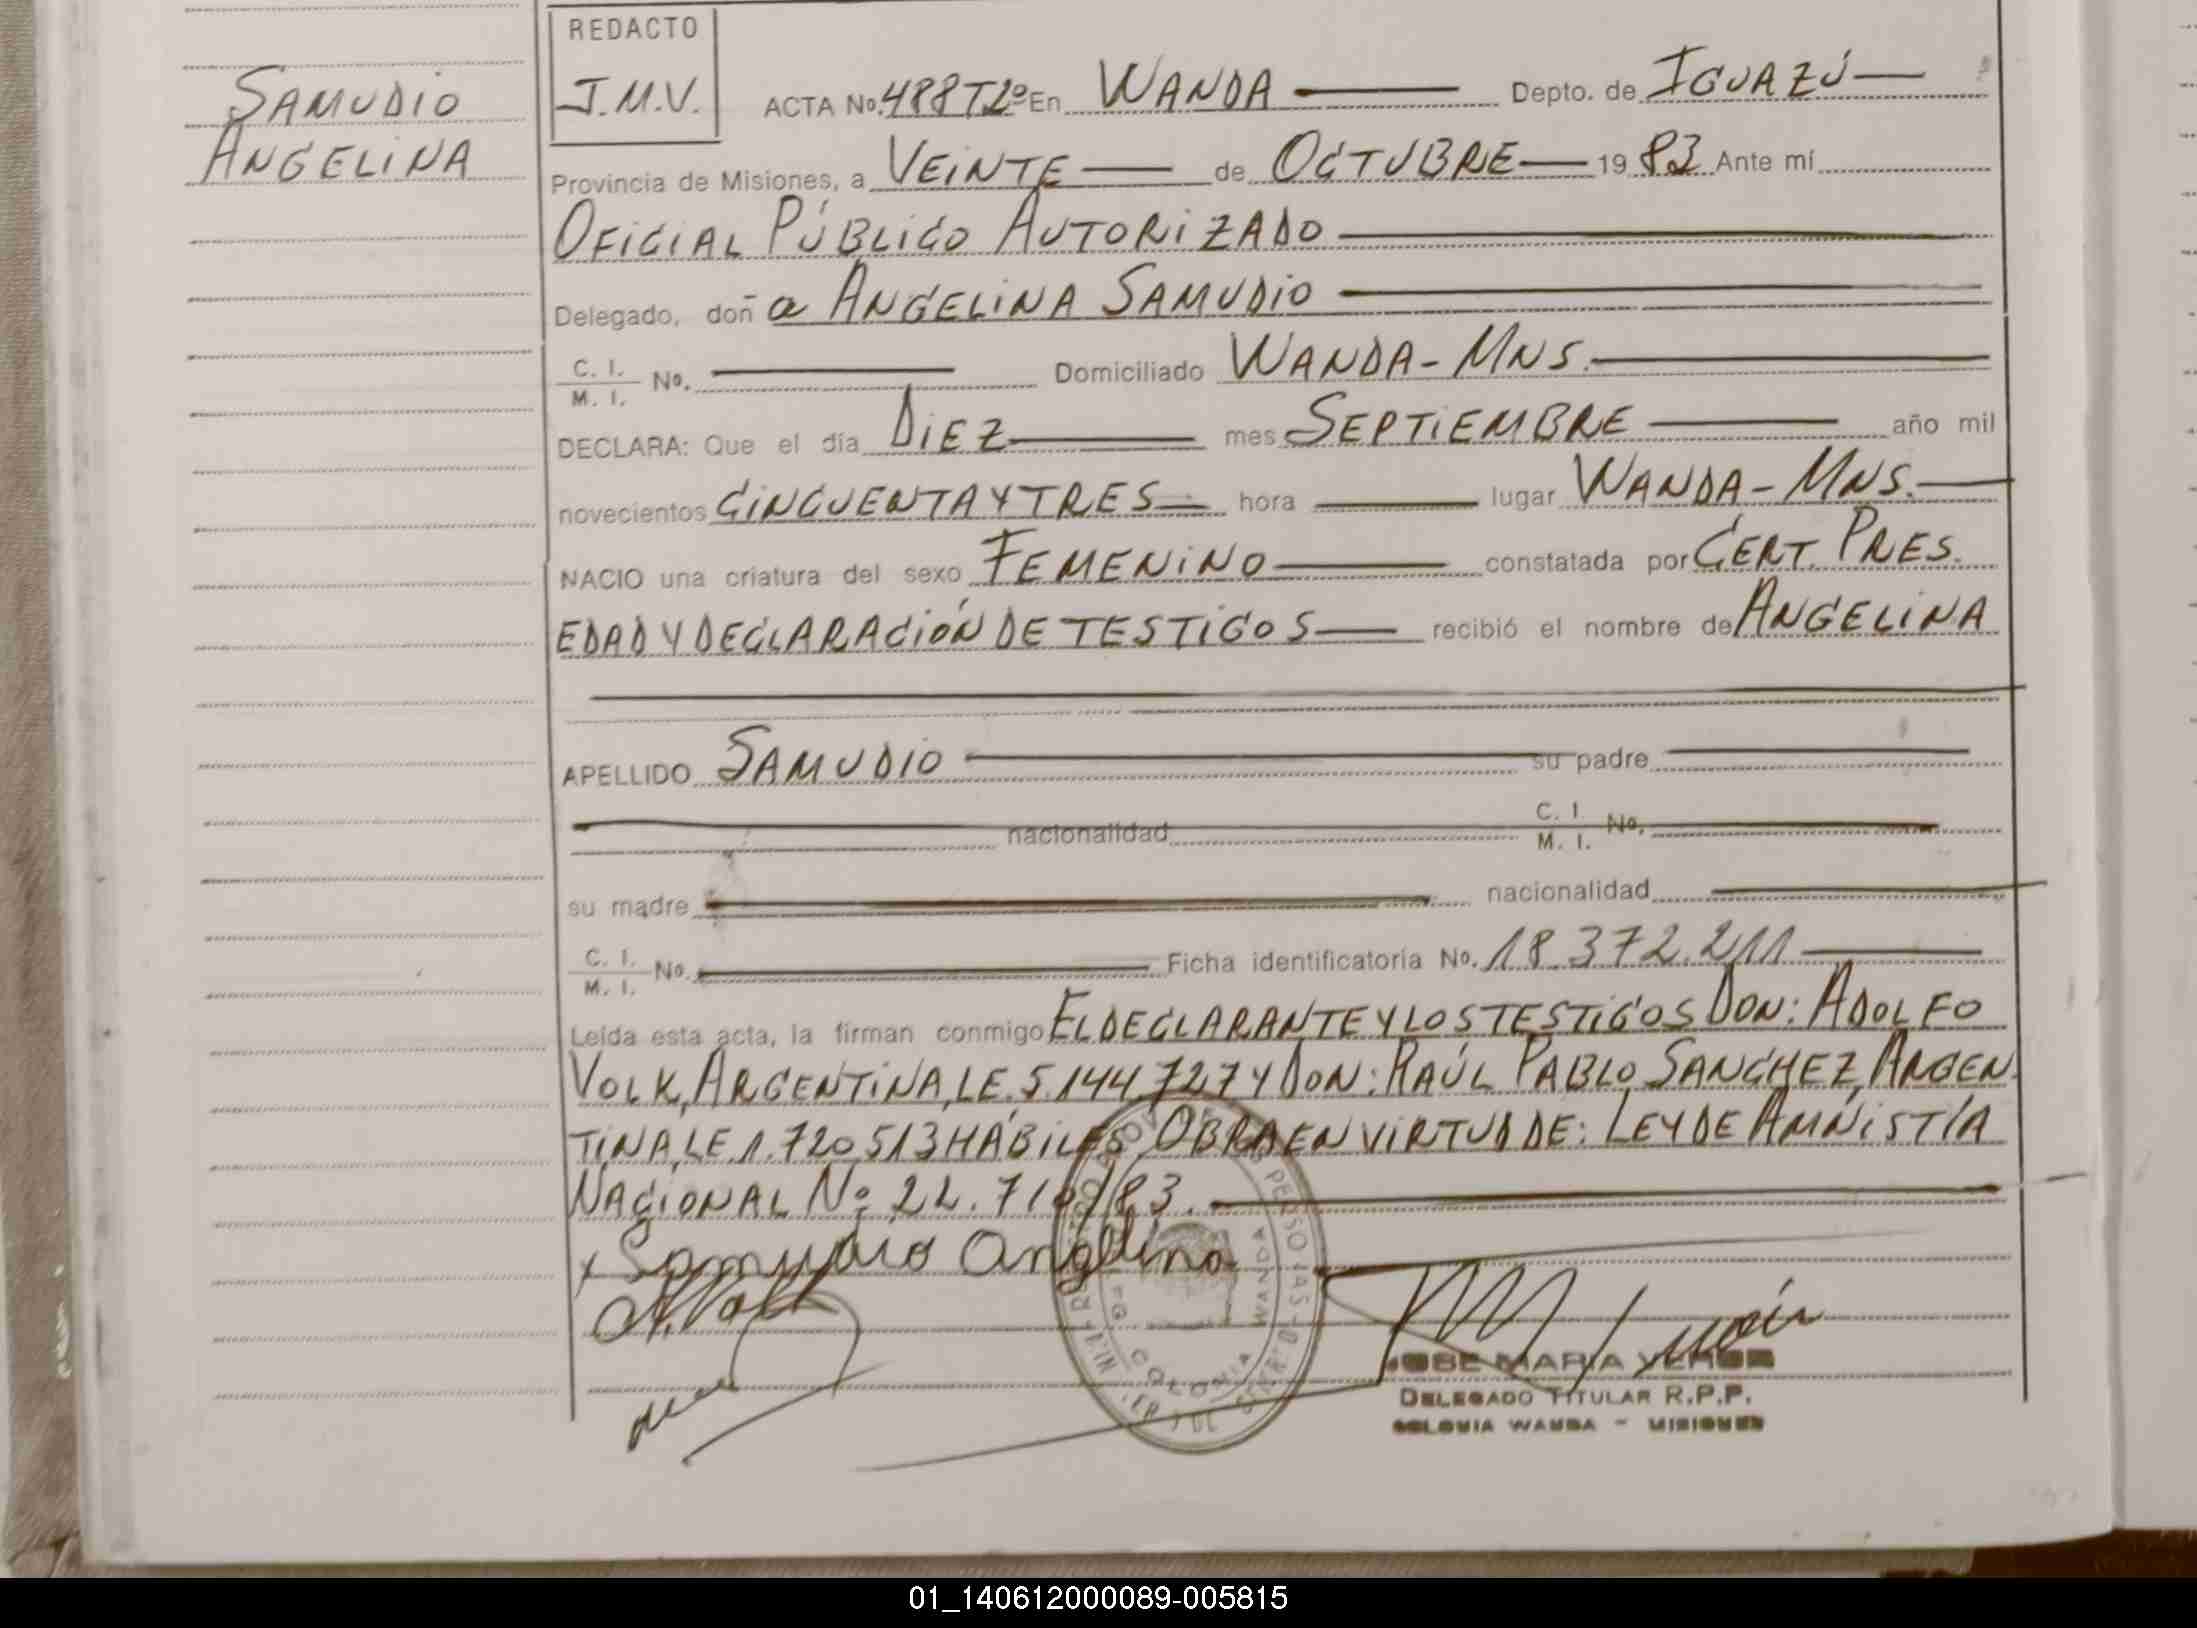 SAMUDIO
ANGELINA
REDACTO
J.M.V.
ACTA No. 488T2º En WANDA Depto. de IGUAZÚ
Provincia de Misiones, a VEINTE de OCTUBRE 1983 Ante mí
OFICIAL PÚBLICO AUTORIZADO
Delegado, doña ANGELINA SAMUDIO
C. I.
M. I. No. Domiciliado WANDA-MNS.
DECLARA: Que el día DIEZ mes SEPTIEMBRE año mil
novecientos CINCUENTA Y TRES hora lugar WANDA-MNS.
NACIO una criatura del sexo FEMENINO constatada por CERT. PRES.
EDAD Y DECLARACIÓN DE TESTIGOS recibió el nombre de ANGELINA
APELLIDO SAMUDIO su padre
nacionalidad C. I.
M. I. No.
su madre nacionalidad
C. I.
M. I. No. Ficha identificatoria No. 18.372.211
Leída esta acta, la firman conmigo EL DECLARANTE Y LOS TESTIGOS DON: ADOLFO
VOLK, ARGENTINA, LE. 5.144.727 Y DON: RAÚL PABLO SANCHEZ, ARGEN
TINA, LE. 1.720.513 HÁBILES OBRA EN VIRTUD DE: LEY DE AMNISTÍA
NACIONAL Nº 22. /83.
x Samudio Angelina
A. Volk
COLONIA WANDA
JOSE MARIA
DELEGADO TITULAR R.P.P.
COLONIA WANDA - MISIONES
01_140612000089-005815